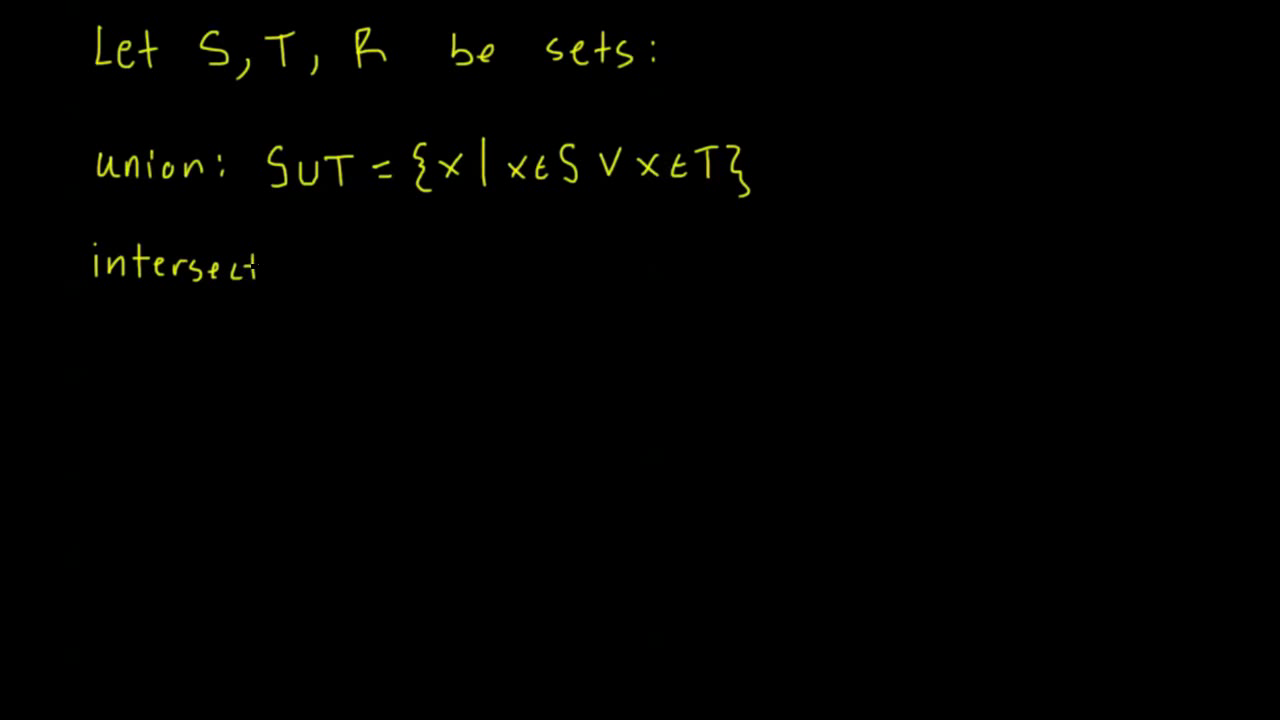 Let S, T, R be sets:
union: S∪T = {x | x∈S ∨ x∈T}
intersect